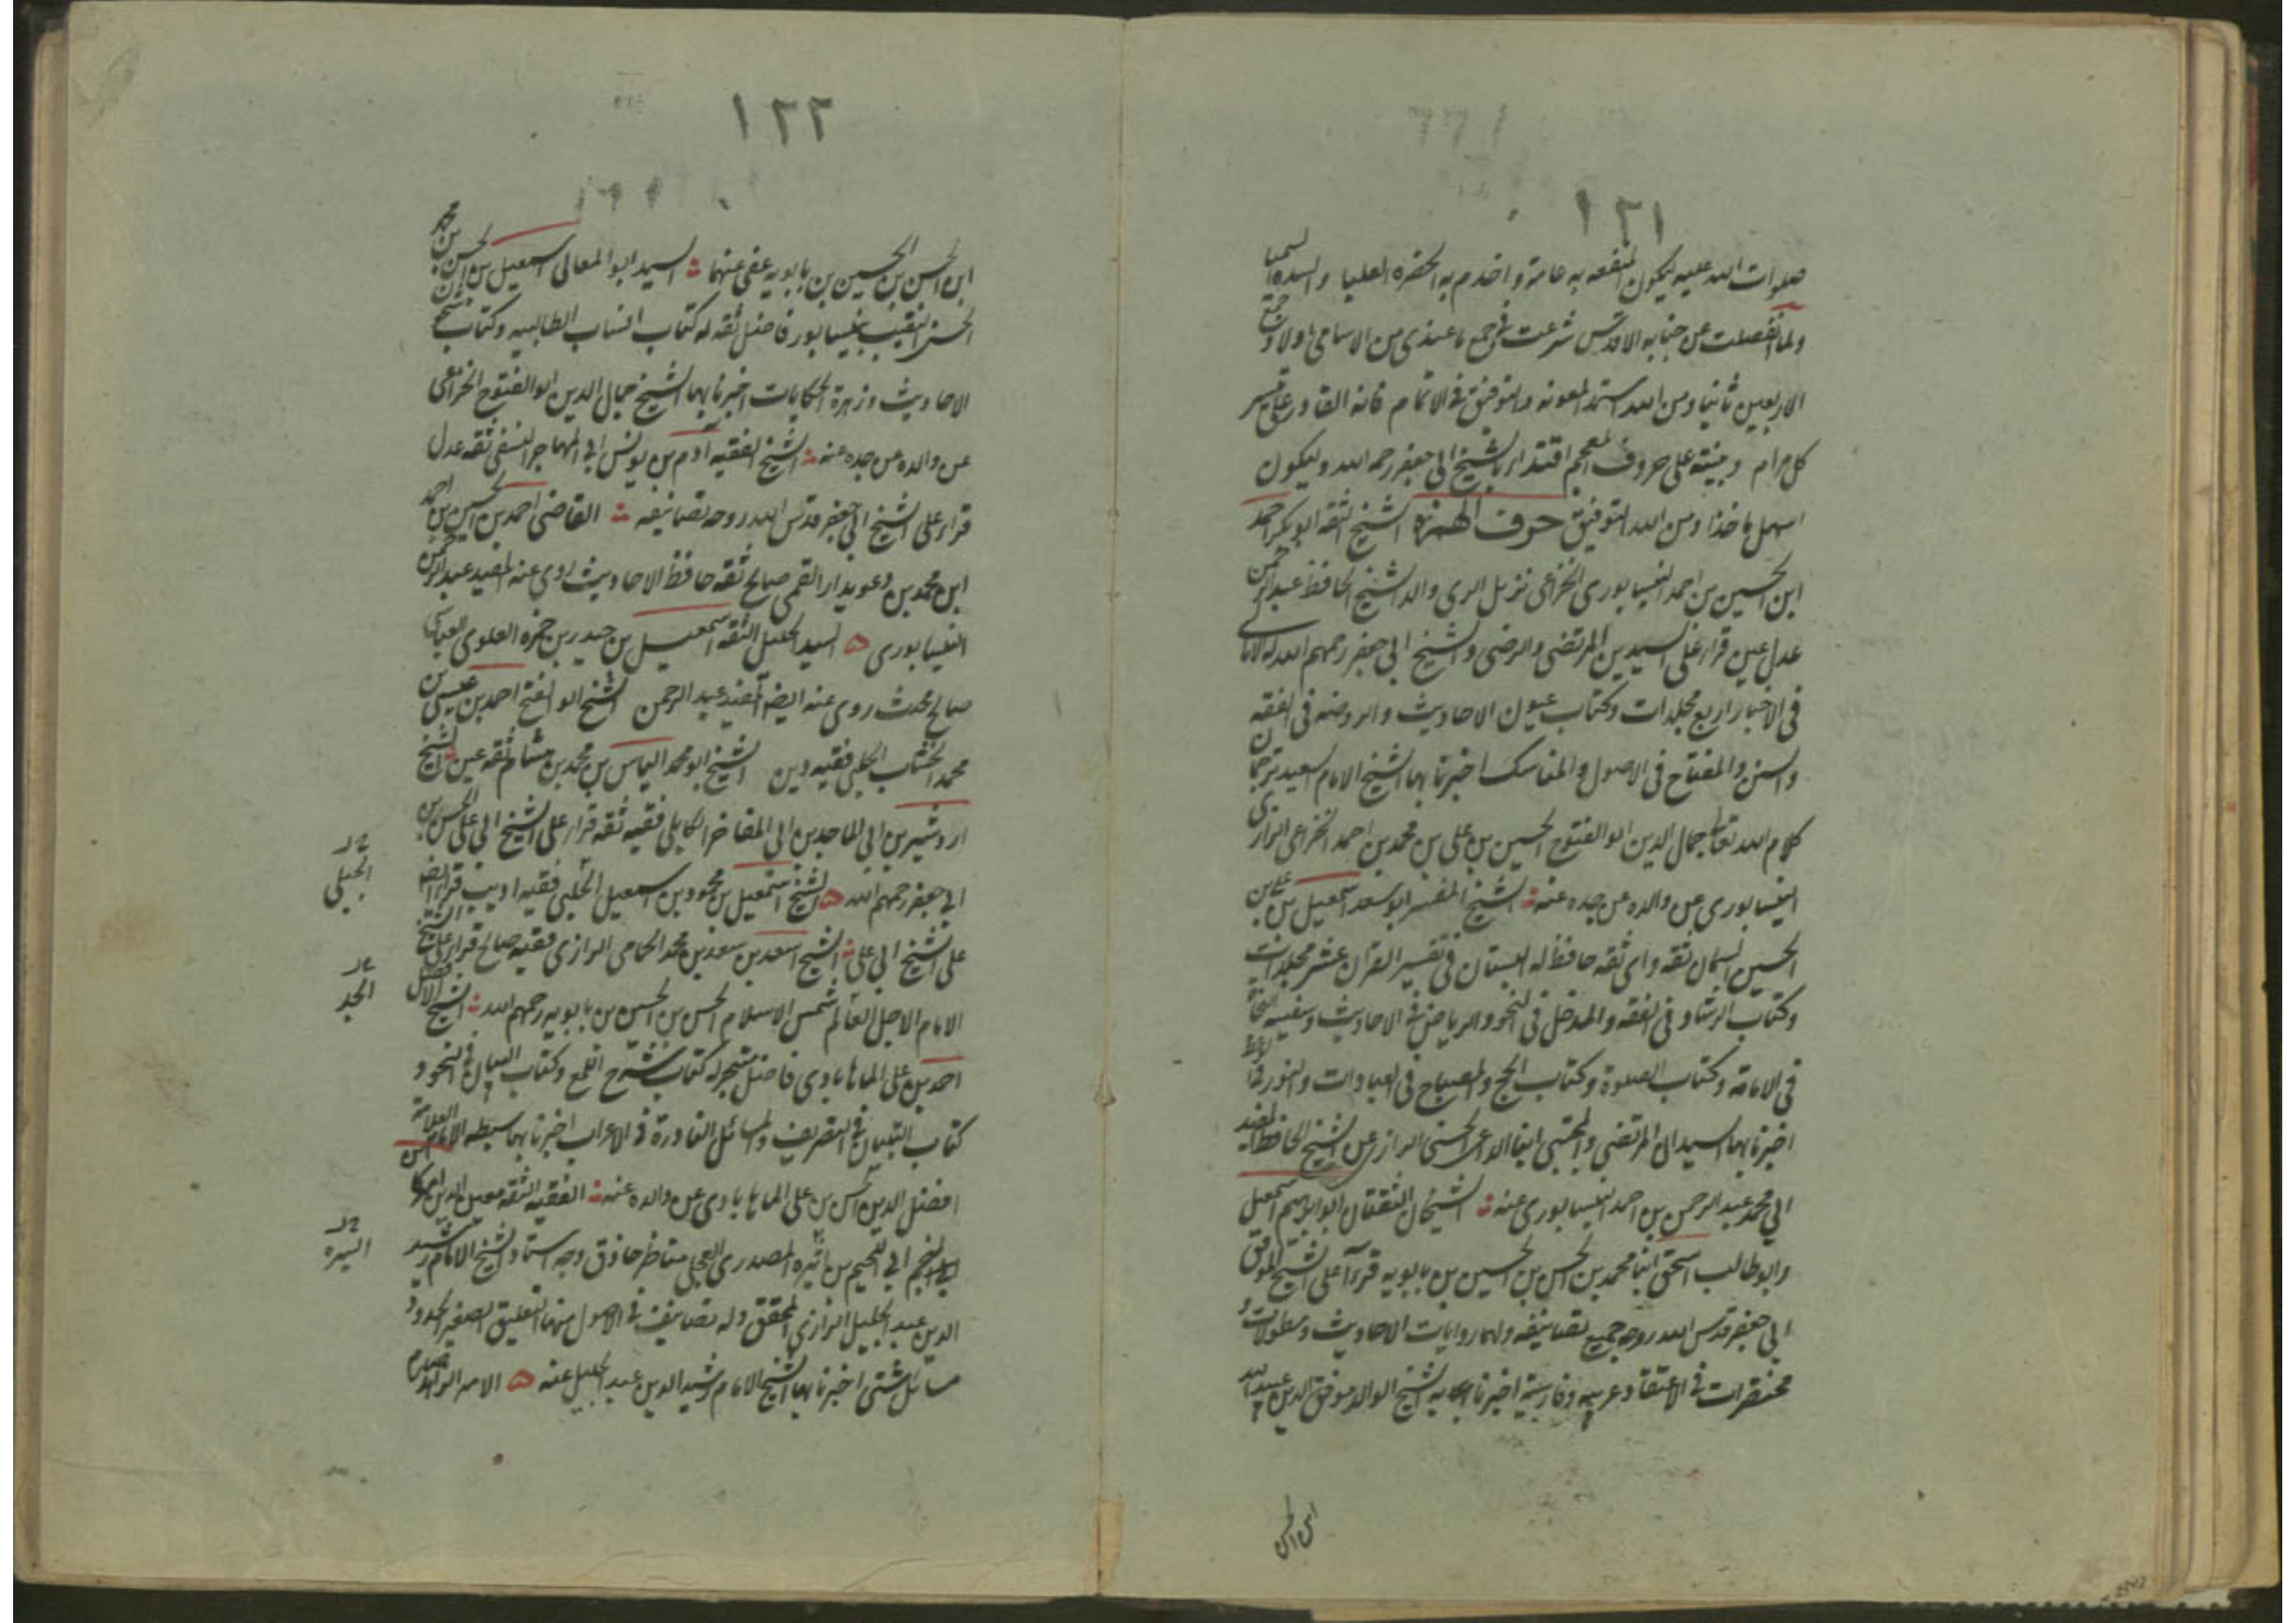 ١٢١
صلوات الله عليه ليكون المنفعه به عامة و اخدم به الحضره العليا والسده السميا
ولما انفصلت عن جنابه الاقدس شرعت في جمع ما عندى من الاسامى اولا و جمع
الاربعين ثانيا ومن الله استمد المعونه والتوفيق في الاتمام فانه القادر على تيسير
كل مرام وبنيته على حروف المعجم اقتداء بالشيخ ابى جعفر رحمه الله وليكون
اسهل ماخذا ومن الله التوفيق حرف الهمزه الشيخ الثقه ابو بكر احمد
ابن الحسين بن احمد النيسابورى الخزاعى نزيل الرى والد الشيخ الحافظ عبد الرحمن
عدل عين قرأ على السيدين المرتضى والرضى والشيخ ابى جعفر رحمهم الله له الامالى
فى الاخبار اربع مجلدات وكتاب عيون الاحاديث والروضه فى الفقه
والسنن والمفتاح فى الاصول والمناسك اخبرنا بها الشيخ الامام السعيد ترجمان
كلام الله تعالى جمال الدين ابو الفتوح الحسين بن على بن محمد بن احمد الخزاعى الرازى
النيسابورى عن والده عن جده عنه الشيخ المفسر ابو سعد اسمعيل بن على بن
الحسين السمان ثقه واى ثقه حافظ له البستان فى تفسير القرآن عشر مجلدات
وكتاب الرشاد فى الفقه والمدخل فى النحو والرياض فى الاحاديث وسفينه النجاة
فى الامامة وكتاب الصلوة وكتاب الحج والمصباح فى العبادات والنور فى الوعظ
اخبرنا بها السيدان المرتضى والمجتبى ابنا الداعى الحسنى الرازى عن الشيخ الحافظ المفيد
ابي محمد عبد الرحمن بن احمد النيسابورى عنه الشيخان الثقتان ابو ابرهيم اسمعيل
وابو طالب اسحق ابنا محمد بن الحسن بن الحسين بن بابويه قرءآ على الشيخ الموفق
ابى جعفر قدس الله روحه جميع تصانيفه ولهما روايات الاحاديث ومطولات و
مختصرات في الاعتقاد عربيه وفارسية اخبرنا بها به الشيخ الوالد موفق الدين عبيد الله
ابن الحسن
١٢٢
ابن الحسن بن الحسين بن بابويه عفى عنهما السيد ابو المعالى اسمعيل بن الحسن بن محمد
الحسنى النقيب بنيسابور فاضل ثقه له كتاب انساب الطالبيه وكتاب شجون
الاحاديث وزهرة الحكايات اخبرنا بهما الشيخ جمال الدين ابو الفتوح الخزاعى
عن والده عن جده عنه الشيخ الفقيه ادم بن يونس ابي المهاجر النسفى ثقه عدل
قرأ على الشيخ ابي جعفر قدس الله روحه تصانيفه القاضى احمد بن الحسين بن احمد
ابن محمد بن دعويدار القمى صالح ثقه حافظ الاحاديث روى عنه المفيد عبد الرحمن
النيسابورى السيد الجليل الثقه اسمعيل بن حيدر بن حمزه العلوى العباسى
صالح محدث روى عنه ايضا المفيد عبد الرحمن الشيخ ابو الفتح احمد بن عيسى بن
محمد الخشاب الحلبى فقيه دين الشيخ ابو محمد الياس بن محمد بن هشام ثقه عين الشيخ
اردشير بن ابي الماجدين ابي المفاخر الكابلى فقيه ثقه قرأ على الشيخ ابي على الحسن بن
ابي جعفر رحمهم الله الشيخ اسمعيل بن محمود بن اسمعيل الحلبى فقيه اديب قرأ ايضا
على الشيخ ابي على الشيخ اسعد بن سعد بن محمد الحمامى الرازى فقيه صالح قرأ على الشيخ
الامام الاجل العالم شمس الاسلام الحسن بن الحسين بن بابويه رحمهم الله الشيخ الافضل
احمد بن على الماهابادى فاضل متبحر له كتاب شرح اللمع وكتاب البيان فى النحو و
كتاب التبيان في التصريف والمسائل النادرة في الاعراب اخبرنا بها سبطه الامام العلامة
افضل الدين الحسن بن على الماهابادى عن والده عنه الفقيه الثقه معين الدين اميركا
ابن ابي اللحيم بن اميره المصدرى العجلى مناظر حاذق وجه استاد الشيخ الامام رشيد
الدين عبد الجليل الرازى المحقق وله تصانيف في الاصول منها التعليق الصغير الحدود
مسائل شتى اخبرنا بها الشيخ الامام رشيد الدين عبد الجليل عنه الامير الزاهد صارم
الجيلى
الجد
السيره